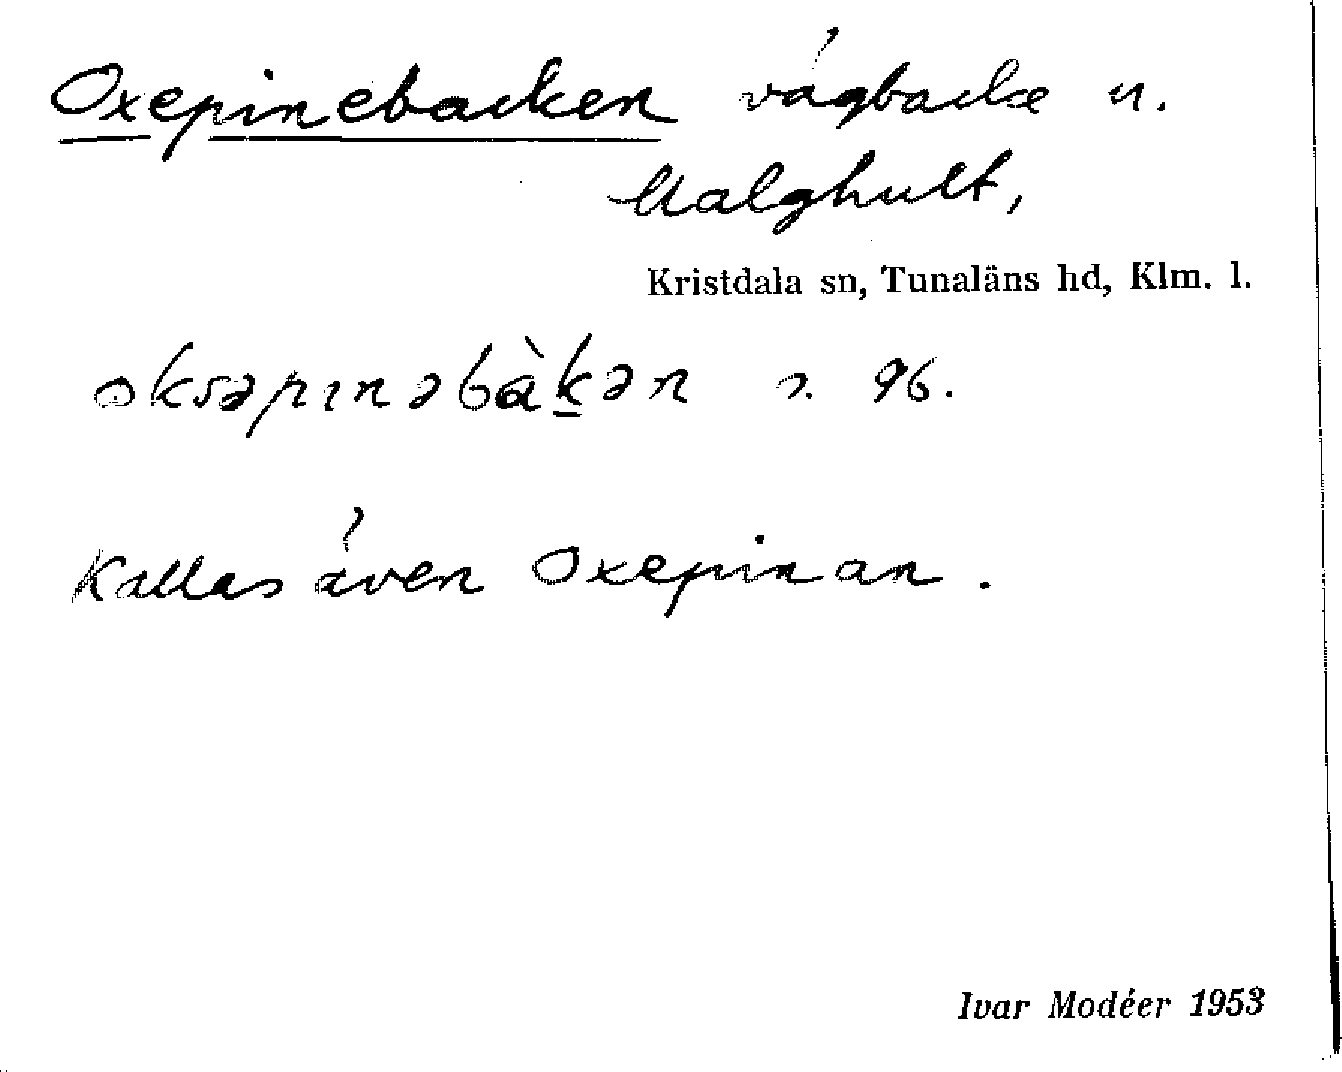 Oxepinebacken vägbacke n.
Malghult,
Kristdala sn, Tunaläns hd, Klm. l.
oksəpɪnəbàk̲ən s. 96.
Kallas även Oxepinan.
Ivar Modéer 1953